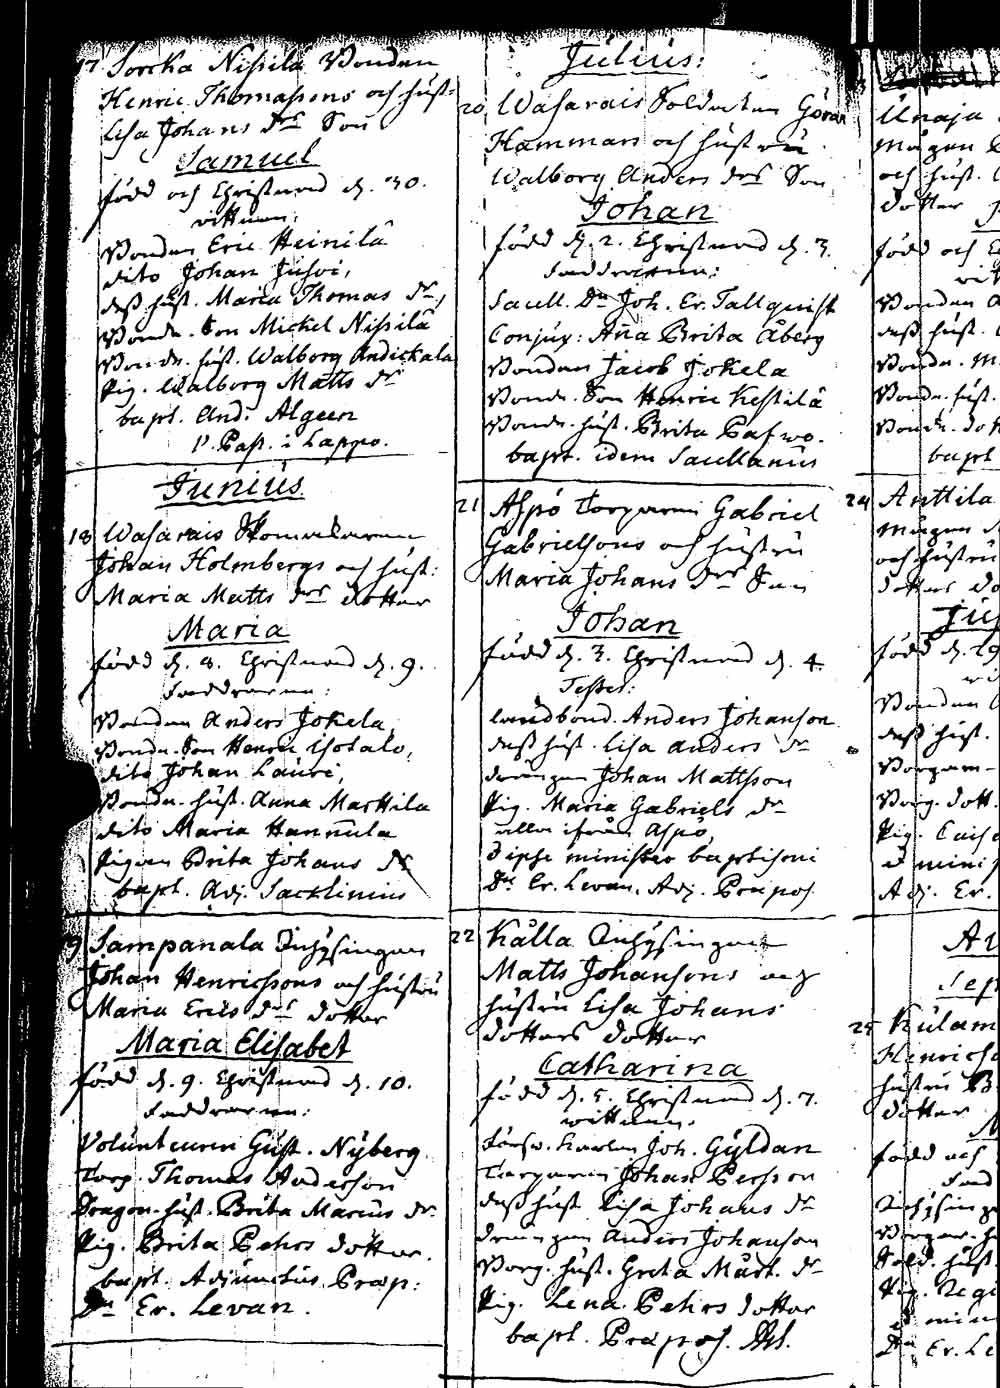 17 Sorcka Nissila Bonden
Henric Thomassons och hust:
Lisa Johans drs Son
Samuel
född och Christnad d. 30.
vittnen:
Bonden Eric Heinilä
dito Johan Jusvi,
dess hust. Maria Thomas dr,
Bonde Son Mickel Nissilä
Bonde hust. Walborg Andickala
Pig. Walborg Matts dr
bapt. And: Algeen
V. Past. i Lappo.
Junius
18 Wasarais Skomakaren
Johan Holmbergs och hust:
Maria Matts drs dotter
Maria
född d. 8. Christnad d. 9.
Faddrarna:
Bonden Anders Jokela
Bonde Son Henric Isotalo,
dito Johan Lauri,
Bonde hust. Anna Marttila
dito Maria Hannula
Pigan Brita Johans dr
bapt. Adj. Sacklinius
19 Sampanala Inhysingen
Johan Henricssons och hustru
Maria Erics drs dotter
Maria Elisabet
född d. 9. Christnad d. 10.
Faddrarna:
Volunteuren Gust. Nyberg
Torp. Thomas Anderson
Dragon hust. Brita Marcus dr
Pig. Brita Pehrs dotter.
bapt. Adjunctus Præp:
Dn Er. Levan.
Julius:
20 Wasarais Soldaten Göran
Hammars och hustru
Walborg Anders drs Son
Johan
född d. 2. Christnad d. 3.
Faddrarna:
Sacell. Dn Joh. Er. Tallquist
Conjux: Aña Brita Åberg
Bonden Jacob Jokela
Bonde Son Henric Kestilä
Bonde hust. Brita Pafwo.
bapt. idem Sacellanus
21 Aspö Torparen Gabriel
Gabrielsons och hustru
Maria Johans drs Son
Johan
född d. 3. Christnad d. 4.
Testes:
Landbond. Anders Johanson
dess hust. Lisa Anders dr
drängen Johan Mattsson
Pig. Maria Gabriels dr
alla ifrån Aspö,
d ipse minister baptismi
Dn Er. Levan, Adj. Præpos.
22 Källa Inhysingen
Matts Johansons och
hustru Lisa Johans
dotters dotter
Catharina
född d. 5. Christnad d. 7.
vittnen:
Joh. Gyldan
Torparen Johan Persson
dess hust Lisa Johans dr
drängen Anders Johanson
Borg. hust. Greta Mårt. dr
Pig. Lena Pehrs dotter
bapt. Præpos.
Unaja
Mågen
och hust.
dotter
född och
Bonden
dess hust.
Bonde. M
Bonde. hust.
Bonde. Joh
bapt
24 Anttila
Mågen
och hustru
dotters
född d. 29
Bonden
dess hust.
Borg. dott.
Pig. Caisa
Adj. Er.
25 Kulam
Henricso
hustru B
dotter
född och
Inhysing
Sold. hust.
Pig. Regi
Dn Er. Le